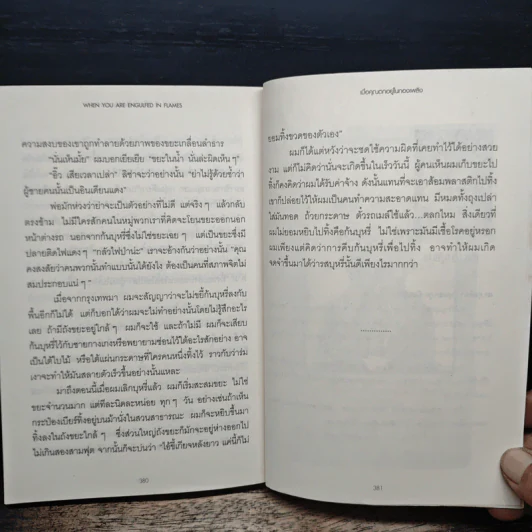 WHEN YOU ARE ENGULFED IN FLAMES
ความสงบของเขาถูกทำลายด้วยภาพของขยะเกลื่อนลำธาร
"นั่นเห็นมั้ย" ผมบอกเฮียเฮีย "ขยะในน้ำ นั่นล่ะผิดเห็นๆ"
"อิ๋ว เสียเวลาเปล่า" ลิซ่าจะว่าอย่างนั้น "ย่าไม่รู้ด้วยซ้ำว่า
ผู้ชายคนนั้นเป็นอินเดียนแดง"
พ่อมักห่วงว่าย่าจะเป็นตัวอย่างที่ไม่ดี แต่จริงๆ แล้วกลับ
ตรงข้าม ไม่มีใครสักคนในหมู่พวกเราที่คิดจะโยนขยะออกนอก
หน้าต่างรถ นอกจากก้นบุหรี่ซึ่งไม่ใช่ขยะเฉยๆ แต่เป็นขยะซึ่งมี
ปลายติดไฟแดงๆ "กลัวไฟป่าน่ะ" เราจะอ้างกันว่าอย่างนั้น "คุณ
คงสงสัยว่าคนพวกนั้นทำแบบนั้นได้ยังไง ต้องเป็นคนที่สภาพจิตไม่
สมประกอบแน่ๆ"
เมื่อจากกรุงเทพมา ผมจะสัญญาว่าจะไม่ขยี้ก้นบุหรี่ลงกับ
พื้นอีกก็ไม่ได้ แต่ก็บอกได้ว่าผมจะไม่ทำอย่างนั้นโดยไม่รู้สึกอะไร
เลย ถ้ามีถังขยะอยู่ใกล้ๆ ผมก็จะใช้ และถ้าไม่มี ผมก็จะเสียบ
ก้นบุหรี่ไว้กับชายกางเกงหรือพยายามซ่อนไว้ใต้อะไรสักอย่าง อาจ
เป็นใต้ใบไม้ หรือใต้แผ่นกระดาษที่ใครคนหนึ่งทิ้งไว้ ราวกับว่าร่ม
เงาจะทำให้มันสลายตัวเร็วขึ้นอย่างนั้นแหละ
มาถึงตอนนี้เมื่อผมเลิกบุหรี่แล้ว ผมก็เริ่มสะสมขยะ ไม่ใช่
ขยะจำนวนมาก แต่ทีละนิดละหน่อย ทุกๆ วัน อย่างเช่นถ้าเห็น
กระป๋องเบียร์ทิ้งอยู่บนม้านั่งในสวนสาธารณะ ผมก็จะหยิบขึ้นมา
ทิ้งลงในถังขยะใกล้ๆ ซึ่งส่วนใหญ่ถังขยะก็มักจะอยู่ห่างออกไป
ไม่เกินสองสามฟุต จากนั้นก็จะบ่นว่า "ไอ้ขี้เกียจหลังยาว แค่นี้ก็ไม่
380
เมื่อคุณตกอยู่ในกองเพลิง
ยอมทิ้งขวดของตัวเอง"
ผมก็ได้แต่หวังว่าจะชดใช้ความผิดที่เคยทำไว้ได้อย่างสวย
งาม แต่ก็ไม่คิดว่านั่นจะเกิดขึ้นในเร็ววันนี้ ผู้คนเห็นผมเก็บขยะไป
ทิ้งก็คงคิดว่าผมได้รับค่าจ้าง ดังนั้นแทนที่จะเอาส้อมพลาสติกไปทิ้ง
เขาก็ปล่อยไว้ให้ผมเป็นคนทำความสะอาดแทน มีหมดทั้งถุงเปล่า
ไส้มันทอด ถ้วยกระดาษ ตั๋วรถเมล์ใช้แล้ว...ตลกไหม สิ่งเดียวที่
ผมไม่ยอมหยิบไปทิ้งคือก้นบุหรี่ ไม่ใช่เพราะมันมีเชื้อโรคอยู่หรอก
ผมเพียงแต่คิดว่าการคีบก้นบุหรี่เพื่อไปทิ้ง อาจทำให้ผมเกิด
จดจำขึ้นมาได้ว่ารสบุหรี่นั้นดีเพียงไรมากกว่า
..............
381